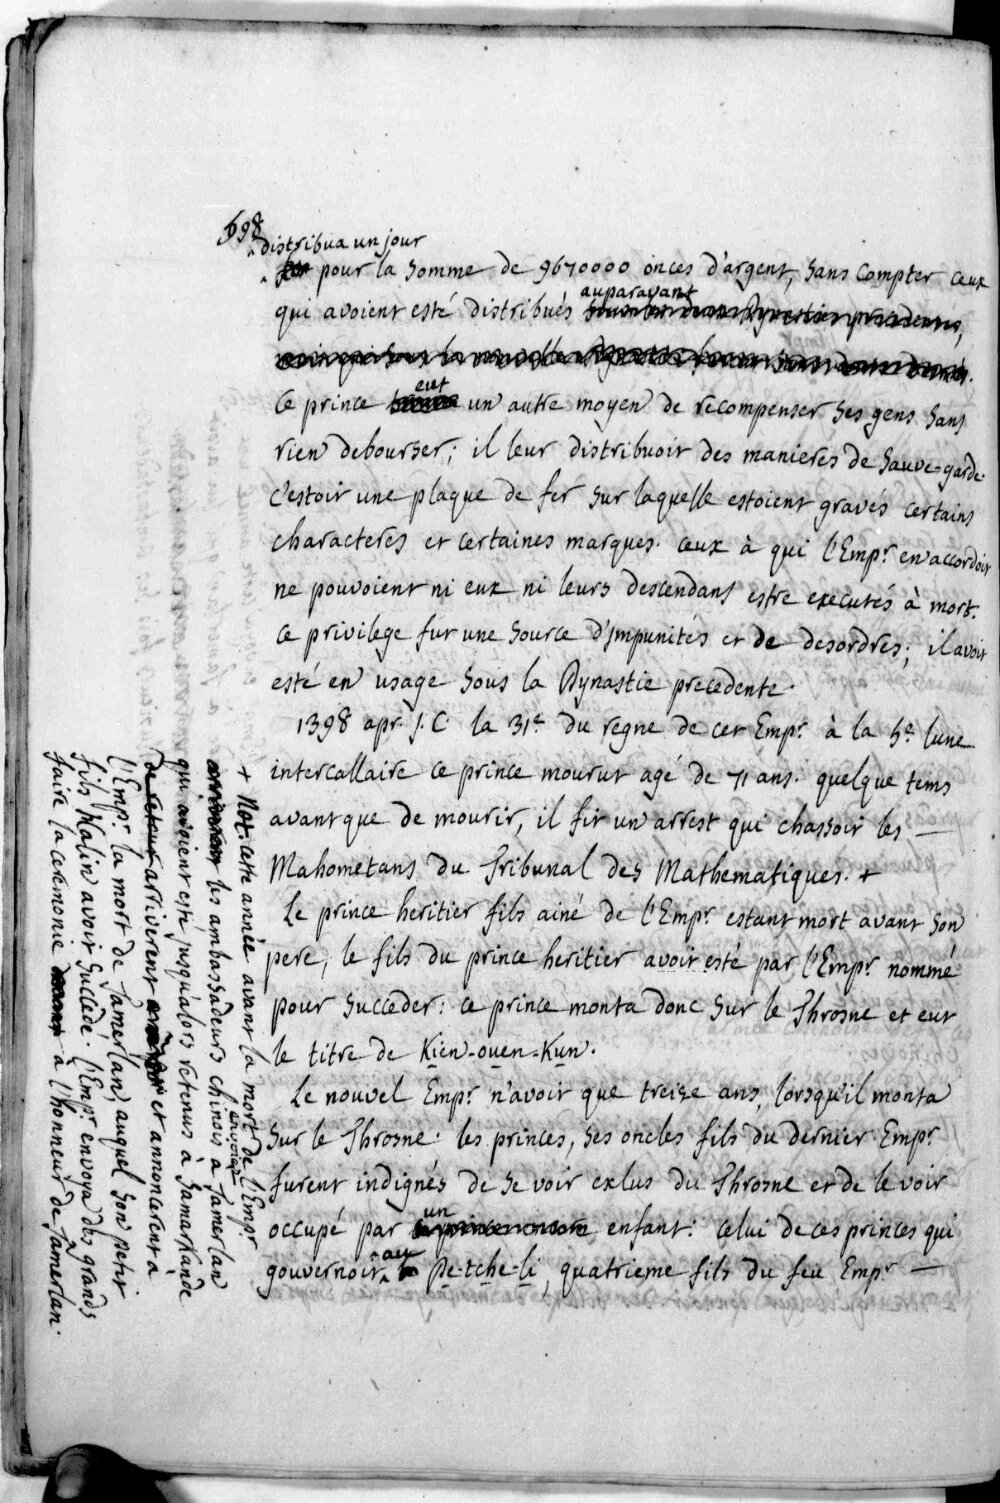 698
distribua un jour
pour la somme de 9670000 onces d'argent, sans compter ceux
qui avoient esté distribués auparavant
ce prince eut un autre moyen de recompenser ses gens sans
rien debourser; il leur distribuoit des manieres de sauve-garde.
c'estoit une plaque de fer sur laquelle estoient gravés certains
characteres et certaines marques. ceux à qui l'Empr. en accordoit
ne pouvoient ni eux ni leurs descendans estre executés à mort.
ce privilege fut une source d'jmpunités et de desordres; il avoit
esté en usage sous la Dynastie precedente.
1398 apr. J.C. la 31e. du regne de cet Empr. à la 5e. lune
intercallaire ce prince mourut agé de 71 ans. quelque tems
avant que de mourir, il fit un arrest qui chassoit les —
Mahometans du Tribunal des Mathematiques. +
Le prince heritier fils ainé de l'Empr. estant mort avant son
pere, le fils du prince heritier avoit esté par l'Empr. nommé
pour succeder: ce prince monta donc sur le Throsne et eut
le titre de Kien-ouen-Kun.
Le nouvel Empr. n'avoit que treize ans, lorsqu'il monta
sur le Throsne. les princes, ses oncles fils du dernier Empr.
furent indignés de se voir exlus du Throsne et de le voir
occupé par un enfant: celui de ces princes qui
gouvernoit au Pe-tche-li, quatrieme fils du feu Empr. —
+ Not. cette année avant la mort de l'Empr
les ambassadeurs chinois envoiés a Tamerlan
qui avoient esté jusqu'alors retenus à Samarkande
de retour arriverent et annoncerent à
l'Empr. la mort de Tamerlan, auquel son petit
fils Halin avoit succédé. l'Empr. envoya des grands
faire la ceremonie à l'honneur de Tamerlan.